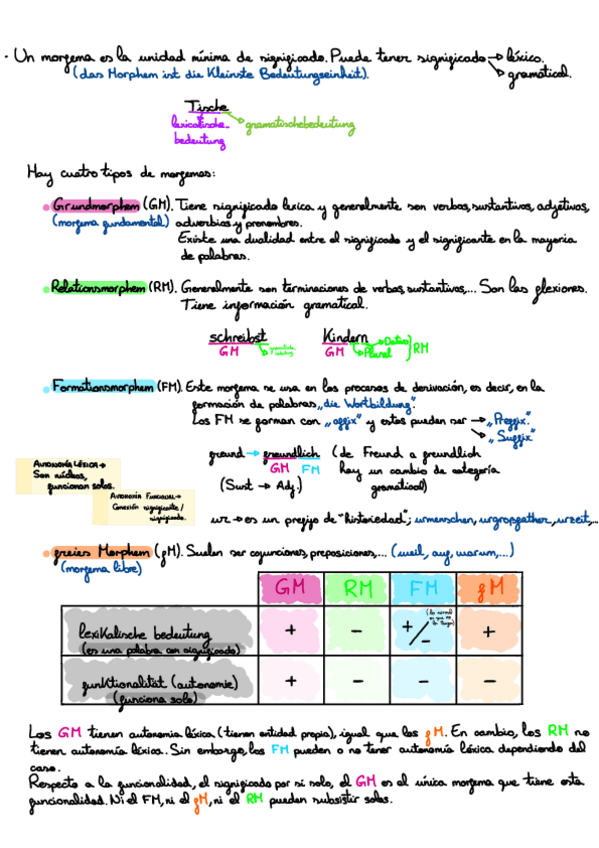 · Un morfema es la unidad mínima de significado. Puede tener significado → léxico.
→ gramatical.
(das Morphem ist die Kleinste Bedeutungseinheit).
Tische
lexicalische
bedeutung
→ gramatischebedeutung
Hay cuatro tipos de morfemas:
• Grundmorphem (GM). Tiene significado lexico y generalmente son verbos, sustantivos, adjetivos,
(morfema fundamental) adverbios y pronombres.
Existe una dualidad entre el significado y el significante en la mayoria
de palabras.
• Relationsmorphem (RM). Generalmente son terminaciones de verbos, sustantivos,... Son las flexiones.
Tiene información gramatical.
schreibst Kindern
GM GM → Plural → Dativ RM
• Formationsmorphem (FM). Este morfema se usa en los procesos de derivación, es decir, en la
formación de palabras „die Wortbildung".
Los FM se forman con „affix" y estos pueden ser → „Prefix".
→ „Suffix"
freund → freundlich (de Freund a freundlich
GM FM hay un cambio de categoría
(Sust → Adj.) gramatical)
AUTONOMÍA LÉXICA →
Son núcleos,
funcionan solos.
AUTONOMÍA FUNCIONAL →
Conexión significante /
significado.
ur → es un prefijo de "historiedad"; urmenschen, urgroßfather, urzeit,...
• freies Morphem (fM). Suelen ser conjunciones, preposiciones,... (weil, auf, warum,...)
(morfema libre)
GM RM FM fM
lexikalische bedeutung + - +/- +
(es una palabra con significado)
funktionalität (autonomie) + - - -
(funciona solo)
Los GM tienen autonomia léxica (tienen entidad propia), igual que los fM. En cambio, los RM no
tienen autonomía léxica. Sin embargo, los FM pueden o no tener autonomía léxica dependiendo del
caso.
Respecto a la funcionalidad, el significado por si solo, el GM es el único morfema que tiene esta
funcionalidad. Ni el FM, ni el fM, ni el RM pueden subsistir solos.